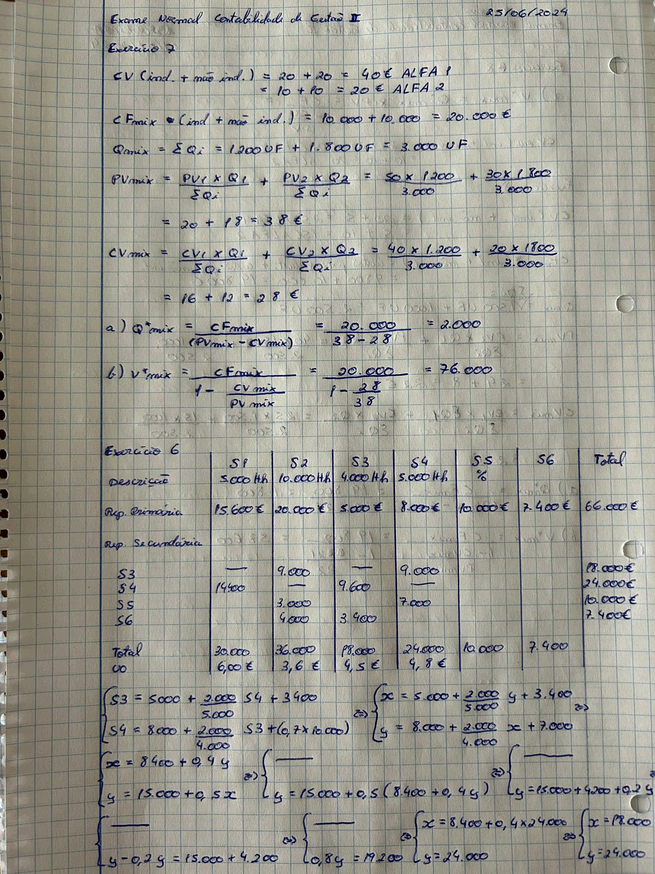 Exame Normal Contabilidade de Gestão II 25/06/2024
Exercício 7
CV (ind. + não ind.) = 20 + 20 = 40 € ALFA 1
= 10 + 10 = 20 € ALFA 2
CFmix (ind + não ind.) = 10.000 + 10.000 = 20.000 €
Qmix = ΣQi = 1200 UF + 1.800 UF = 3.000 UF
PVmix = PV1 x Q1 / ΣQi + PV2 x Q2 / ΣQi = 50 x 1200 / 3.000 + 30 x 1800 / 3.000
= 20 + 18 = 38 €
CVmix = CV1 x Q1 / ΣQi + CV2 x Q2 / ΣQi = 40 x 1.200 / 3.000 + 20 x 1800 / 3.000
= 16 + 12 = 28 €
a) Q*mix = CFmix / (PVmix - CVmix) = 20.000 / 38 - 28 = 2.000
b) V*mix = CFmix / 1 - CVmix / PVmix = 20.000 / 1 - 28 / 38 = 76.000
Exercício 6
S1 S2 S3 S4 S5 S6 Total
Descrição 5.000 Hh 10.000 Hh 4.000 Hh 5.000 Hh %
Rep. Primária 15.600 € 20.000 € 5.000 € 8.000 € 10.000 € 7.400 € 66.000 €
Rep. Secundária
S3 — 9.000 — 9.000 18.000 €
S4 14400 — 9.600 — 24.000 €
S5 3.000 7.000 10.000 €
S6 4.000 3.400 7.400 €
Total 30.000 36.000 18.000 24.000 10.000 7.400
UO 6,00 € 3,6 € 4,5 € 4,8 €
{ S3 = 5000 + 2.000 / 5.000 S4 + 3400 ⇔ { x = 5.000 + 2.000 / 5.000 y + 3.400 ⇔
S4 = 8000 + 2.000 / 4.000 S3 + (0,7 x 10.000) y = 8.000 + 2.000 / 4.000 x + 7.000
{ x = 8400 + 0,4 y ⇔ { — ⇔ { —
y = 15.000 + 0,5 x y = 15.000 + 0,5 (8.400 + 0,4 y) y = 15.000 + 4200 + 0,2 y
{ — ⇔ { — ⇔ { x = 8.400 + 0,4 x 24.000 ⇔ { x = 18.000
y - 0,2 y = 15.000 + 4.200 0,8 y = 19200 y = 24.000 y = 24.000